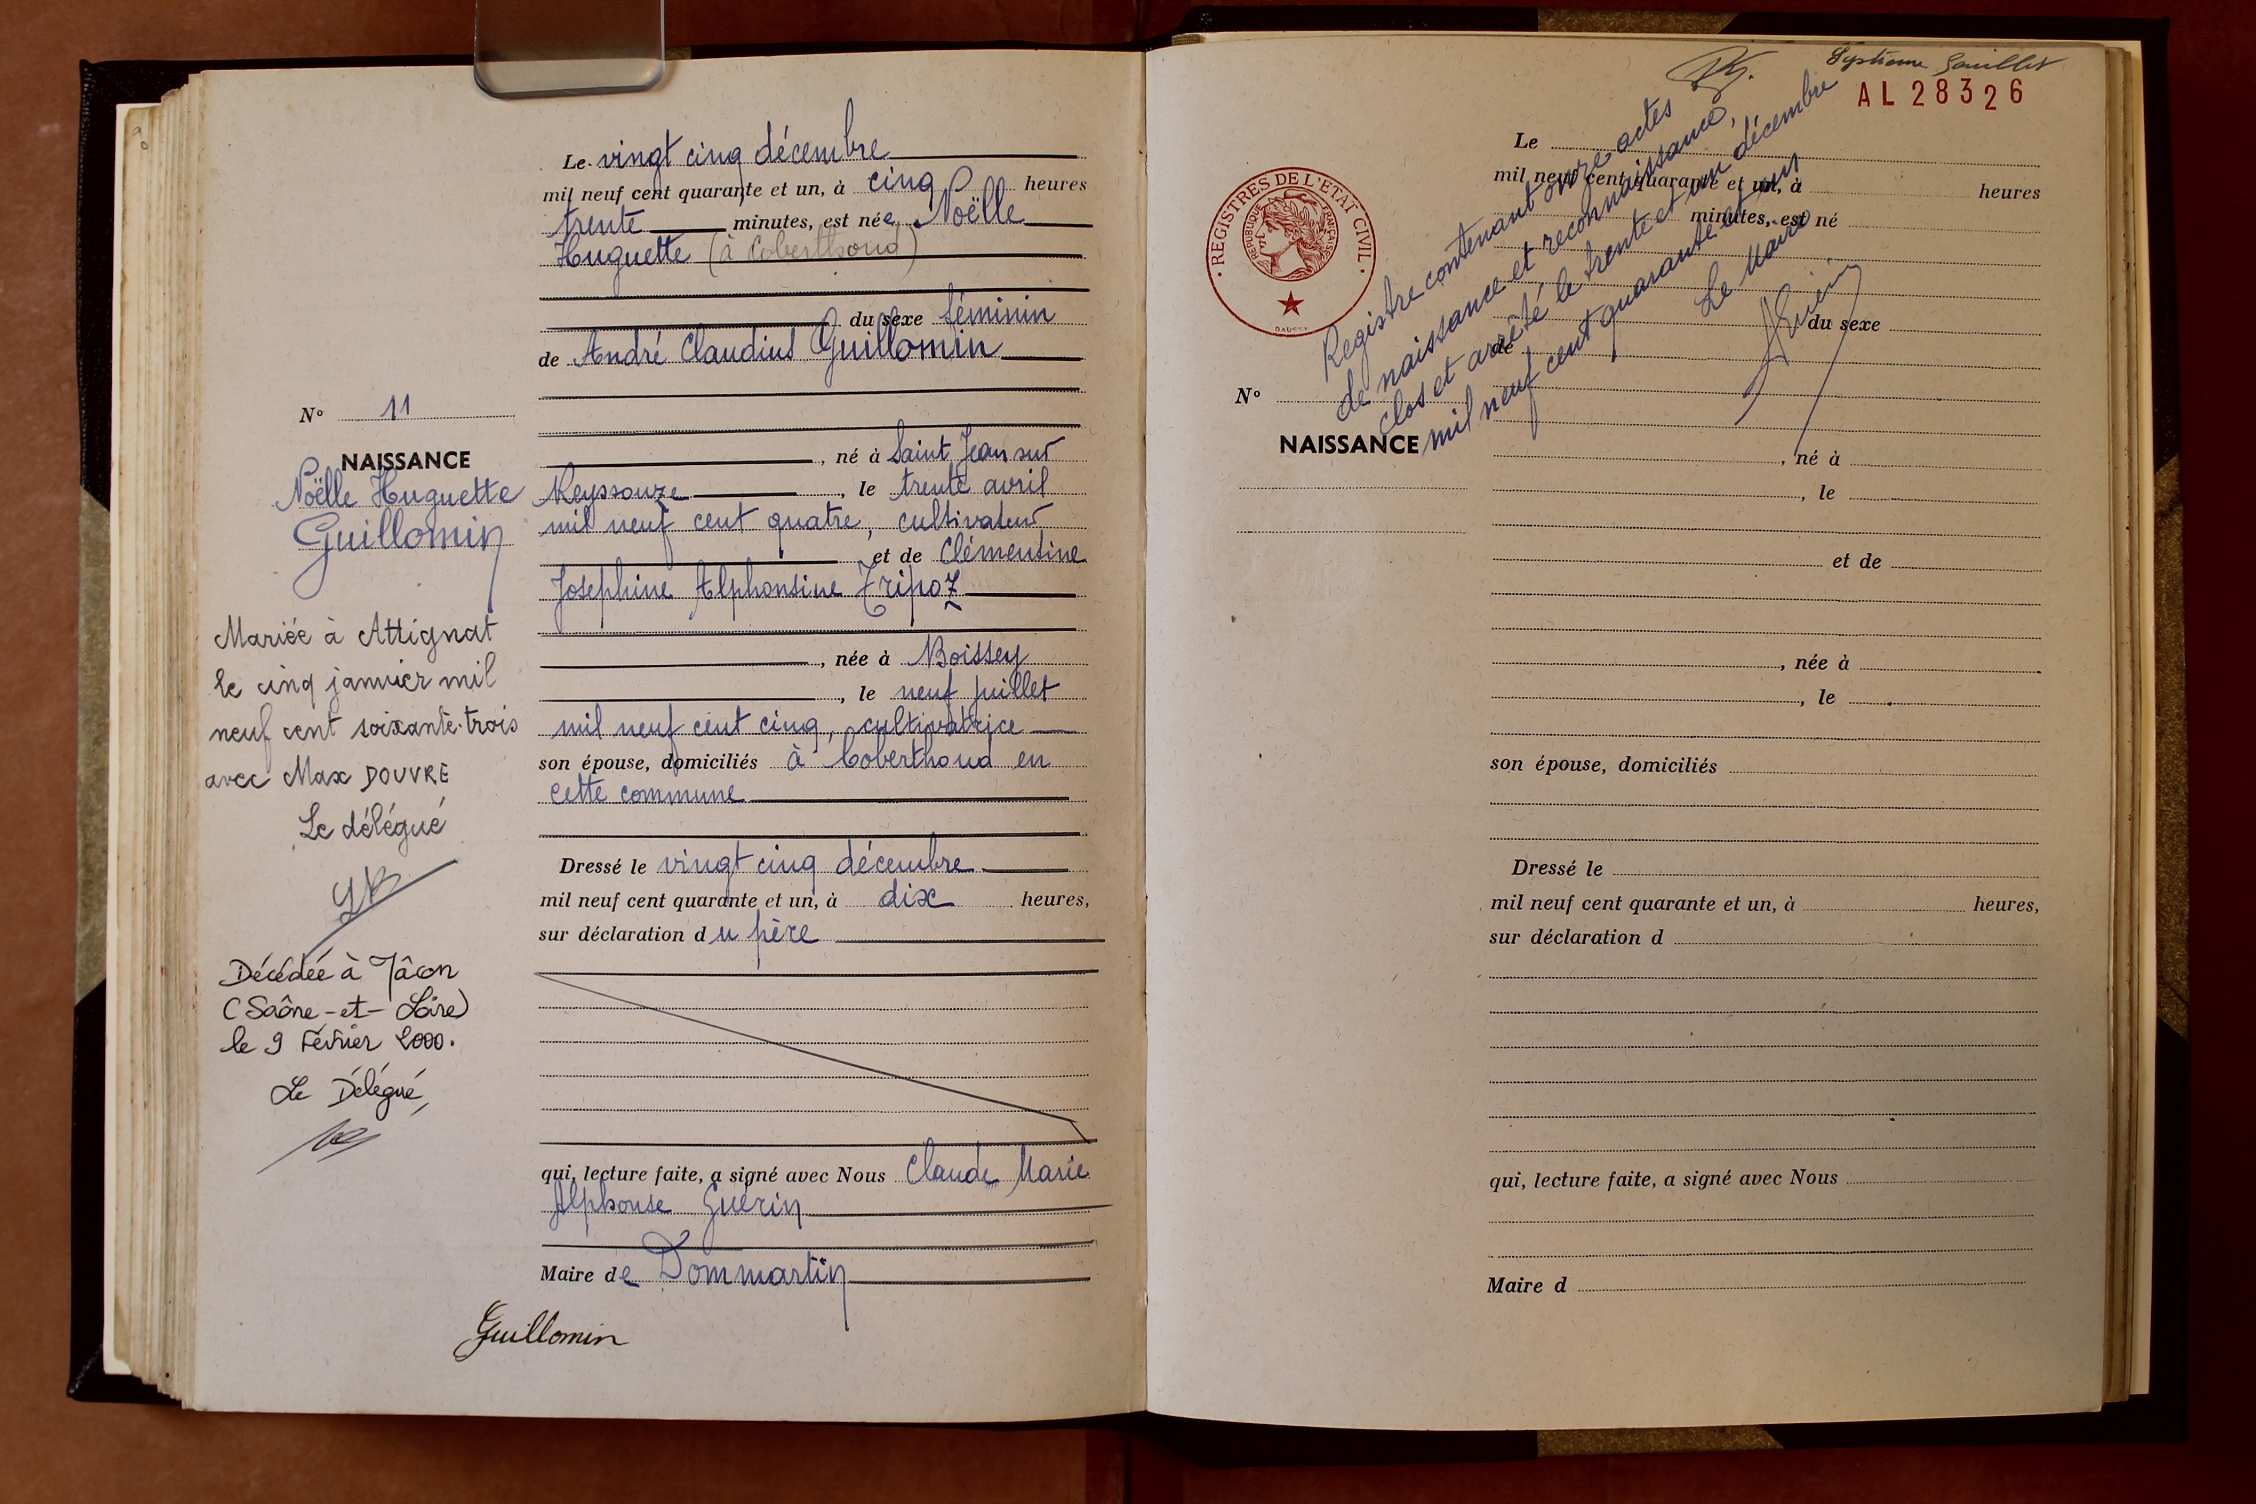 Le vingt cinq décembre
mil neuf cent quarante et un, à cinq heures
trente minutes, est née Noëlle
Huguette (à Coberthoud)
du sexe féminin
de André Claudius Guillomin
, né à Saint Jean sur
Reyssouze, le trente avril
mil neuf cent quatre, cultivateur
et de Clémentine
Joséphine Alphonsine Tripoz
, née à Boissey
, le neuf juillet
mil neuf cent cinq, cultivatrice
son épouse, domiciliés à Coberthoud en
cette commune
Dressé le vingt cinq décembre
mil neuf cent quarante et un, à dix heures,
sur déclaration du père
qui, lecture faite, a signé avec Nous Claude Marie
Alphonse Guérin
Maire de Dommartin
Guillomin
No 11
NAISSANCE
Noëlle Huguette
Guillomin
Mariée à Attignat
le cinq janvier mil
neuf cent soixante-trois
avec Max DOUVRE
Le délégué
Décédée à Mâcon
(Saône-et-Loire)
le 9 Février 2000.
Le Délégué,
AL 28326
REGISTRES DE L'ETAT CIVIL
REPUBLIQUE FRANÇAISE
Registre contenant onze actes
de naissance et reconnaissance,
clos et arrêté le trente et un décembre
mil neuf cent quarante et un
Le Maire
Le
mil neuf cent quarante et un, à heures
minutes, est né
du sexe
de
No
NAISSANCE
, né à
, le
et de
, née à
, le
son épouse, domiciliés
Dressé le
mil neuf cent quarante et un, à heures,
sur déclaration d
qui, lecture faite, a signé avec Nous
Maire d